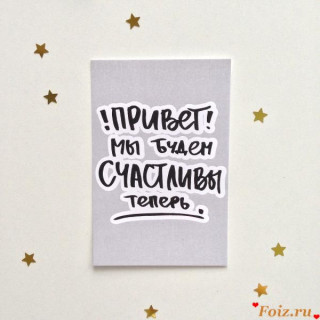 !ПРИВЕТ!
МЫ БУДЕМ
СЧАСТЛИВЫ
ТЕПЕРЬ.
Foiz.ru